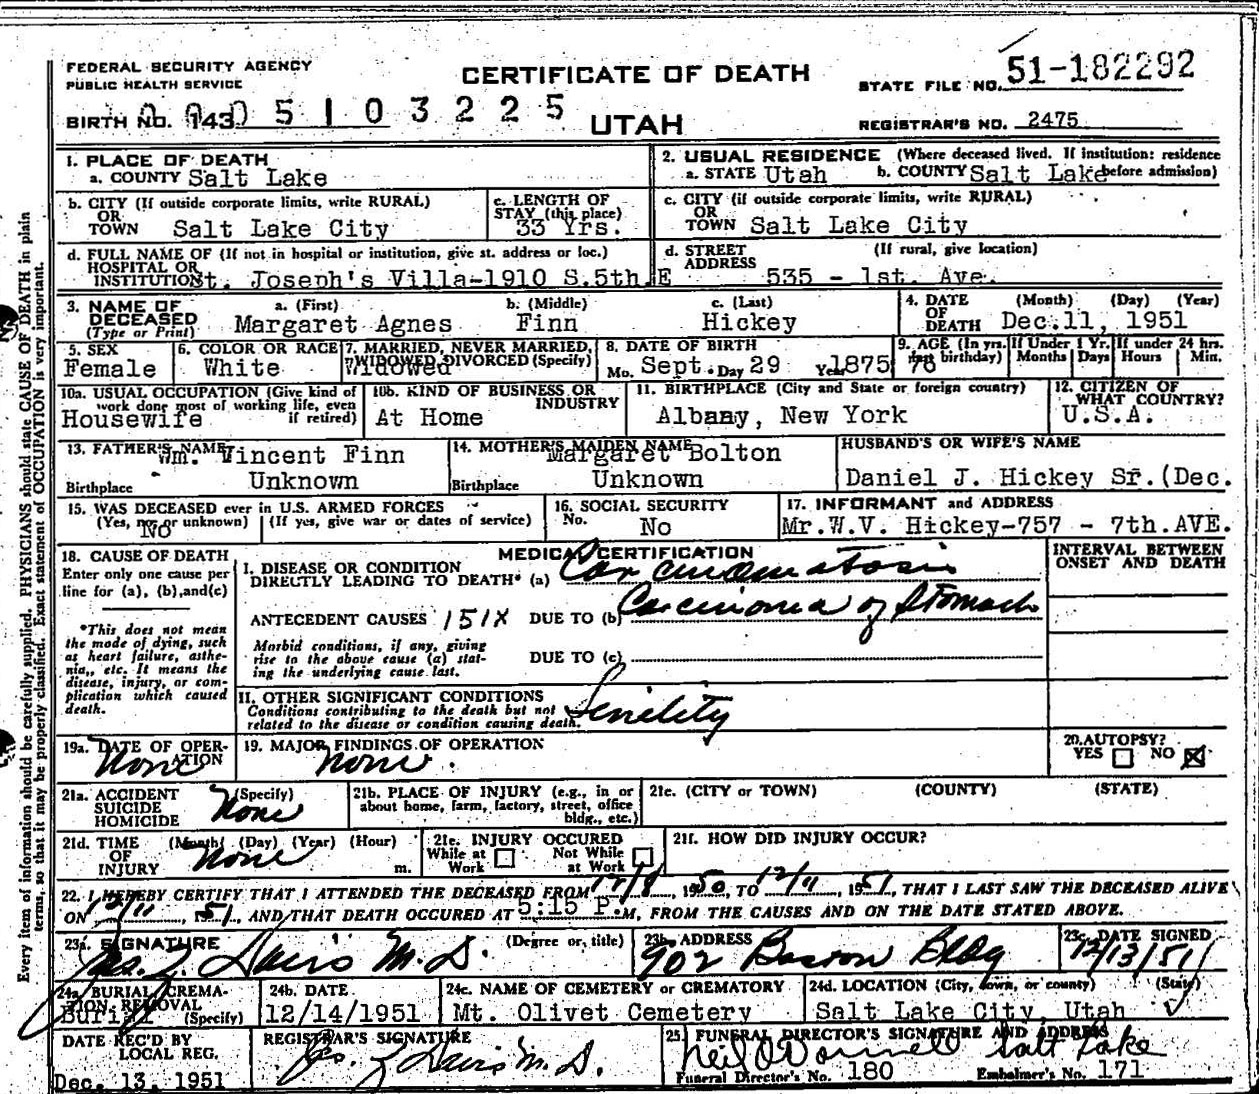 FEDERAL SECURITY AGENCY
PUBLIC HEALTH SERVICE
CERTIFICATE OF DEATH
STATE FILE NO. 51-182292
BIRTH NO. 143 0005103225
UTAH
REGISTRAR'S NO. 2475
1. PLACE OF DEATH
a. COUNTY Salt Lake
2. USUAL RESIDENCE (Where deceased lived. If institution: residence before admission)
a. STATE Utah b. COUNTY Salt Lake
b. CITY (If outside corporate limits, write RURAL) OR TOWN Salt Lake City
c. LENGTH OF STAY (this place) 33 Yrs.
c. CITY (if outside corporate limits, write RURAL) OR TOWN Salt Lake City
d. FULL NAME OF (If not in hospital or institution, give st. address or loc.) HOSPITAL OR INSTITUTION St. Joseph's Villa-1910 S.5th.E
d. STREET ADDRESS (If rural, give location) 535 - 1st. Ave.
3. NAME OF DECEASED (Type or Print)
a. (First) Margaret Agnes
b. (Middle) Finn
c. (Last) Hickey
4. DATE OF DEATH (Month) (Day) (Year) Dec.11, 1951
5. SEX Female
6. COLOR OR RACE White
7. MARRIED, NEVER MARRIED, WIDOWED, DIVORCED (Specify) Widowed
8. DATE OF BIRTH Mo. Sept. Day 29 Year 1875
9. AGE (In yrs. last birthday) 76
If Under 1 Yr. Months Days
If under 24 hrs. Hours Min.
10a. USUAL OCCUPATION (Give kind of work done most of working life, even if retired) Housewife
10b. KIND OF BUSINESS OR INDUSTRY At Home
11. BIRTHPLACE (City and State or foreign country) Albany, New York
12. CITIZEN OF WHAT COUNTRY? U.S.A.
13. FATHER'S NAME Wm. Vincent Finn
Birthplace Unknown
14. MOTHER'S MAIDEN NAME Margaret Bolton
Birthplace Unknown
HUSBAND'S OR WIFE'S NAME
Daniel J. Hickey Sr.(Dec.
15. WAS DECEASED ever in U.S. ARMED FORCES
(Yes, no, or unknown) (If yes, give war or dates of service)
No
16. SOCIAL SECURITY No. No
17. INFORMANT and ADDRESS
Mr.W.V. Hickey-757 - 7th.AVE.
18. CAUSE OF DEATH
Enter only one cause per line for (a), (b), and (c)
*This does not mean the mode of dying, such as heart failure, asthenia, etc. It means the disease, injury, or complication which caused death.
MEDICAL CERTIFICATION
INTERVAL BETWEEN ONSET AND DEATH
I. DISEASE OR CONDITION DIRECTLY LEADING TO DEATH* (a) Carcinomatosis
ANTECEDENT CAUSES 151X DUE TO (b) Carcinoma of Stomach
Morbid conditions, if any, giving rise to the above cause (a) stating the underlying cause last.
DUE TO (c)
II. OTHER SIGNIFICANT CONDITIONS
Conditions contributing to the death but not related to the disease or condition causing death. Senility
19a. DATE OF OPERATION None
19. MAJOR FINDINGS OF OPERATION
None.
20. AUTOPSY? YES NO
21a. ACCIDENT SUICIDE HOMICIDE (Specify) None
21b. PLACE OF INJURY (e.g., in or about home, farm, factory, street, office bldg., etc.)
21c. (CITY or TOWN) (COUNTY) (STATE)
21d. TIME OF INJURY (Month) (Day) (Year) (Hour) m. None
21e. INJURY OCCURED While at Work Not While at Work
21f. HOW DID INJURY OCCUR?
22. I HEREBY CERTIFY THAT I ATTENDED THE DECEASED FROM 12/8, 1950, TO 12/11, 1951, THAT I LAST SAW THE DECEASED ALIVE
ON 12/11, 1951, AND THAT DEATH OCCURED AT 5:15 P.M, FROM THE CAUSES AND ON THE DATE STATED ABOVE.
23a. SIGNATURE (Degree or title)
Jas. Z. Davis M.D.
23b. ADDRESS
902 Boston Bldg
23c. DATE SIGNED
12/13/51
24a. BURIAL, CREMATION, REMOVAL (Specify) Burial
24b. DATE
12/14/1951
24c. NAME OF CEMETERY or CREMATORY
Mt. Olivet Cemetery
24d. LOCATION (City, town, or county) (State)
Salt Lake City, Utah
DATE REC'D BY LOCAL REG.
Dec. 13, 1951
REGISTRAR'S SIGNATURE
Jas. Z Davis M.D.
25. FUNERAL DIRECTOR'S SIGNATURE AND ADDRESS
Neil O'Donnell Salt Lake
Funeral Director's No. 180 Embalmer's No. 171
Every item of information should be carefully supplied. PHYSICIANS should state CAUSE OF DEATH in plain
terms, so that it may be properly classified. Exact statement of OCCUPATION is very important.